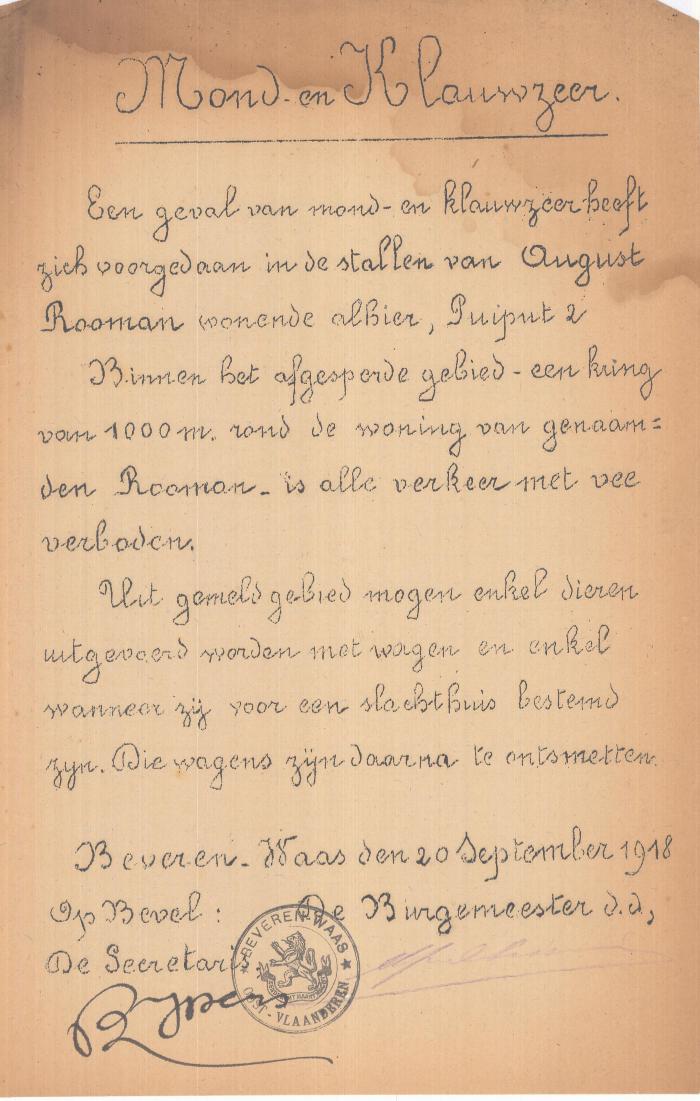 Mond- en Klauwzeer.
Een geval van mond- en klauwzeer heeft
zich voorgedaan in de stallen van August
Rooman wonende alhier, Puiput 2
Binnen het afgesperde gebied - een kring
van 1000 m. rond de woning van genaam=
den Rooman - is alle verkeer met vee
verboden.
Uit gemeld gebied mogen enkel dieren
uitgevoerd worden met wagen en enkel
wanneer zij voor een slachthuis bestemd
zyn. Die wagens zijn daarna te ontsmetten.
Beveren - Waas den 20 September 1918
Op Bevel : De Burgemeester d.d,
De Secretaris
BEVEREN-WAAS
OOST-VLAANDEREN